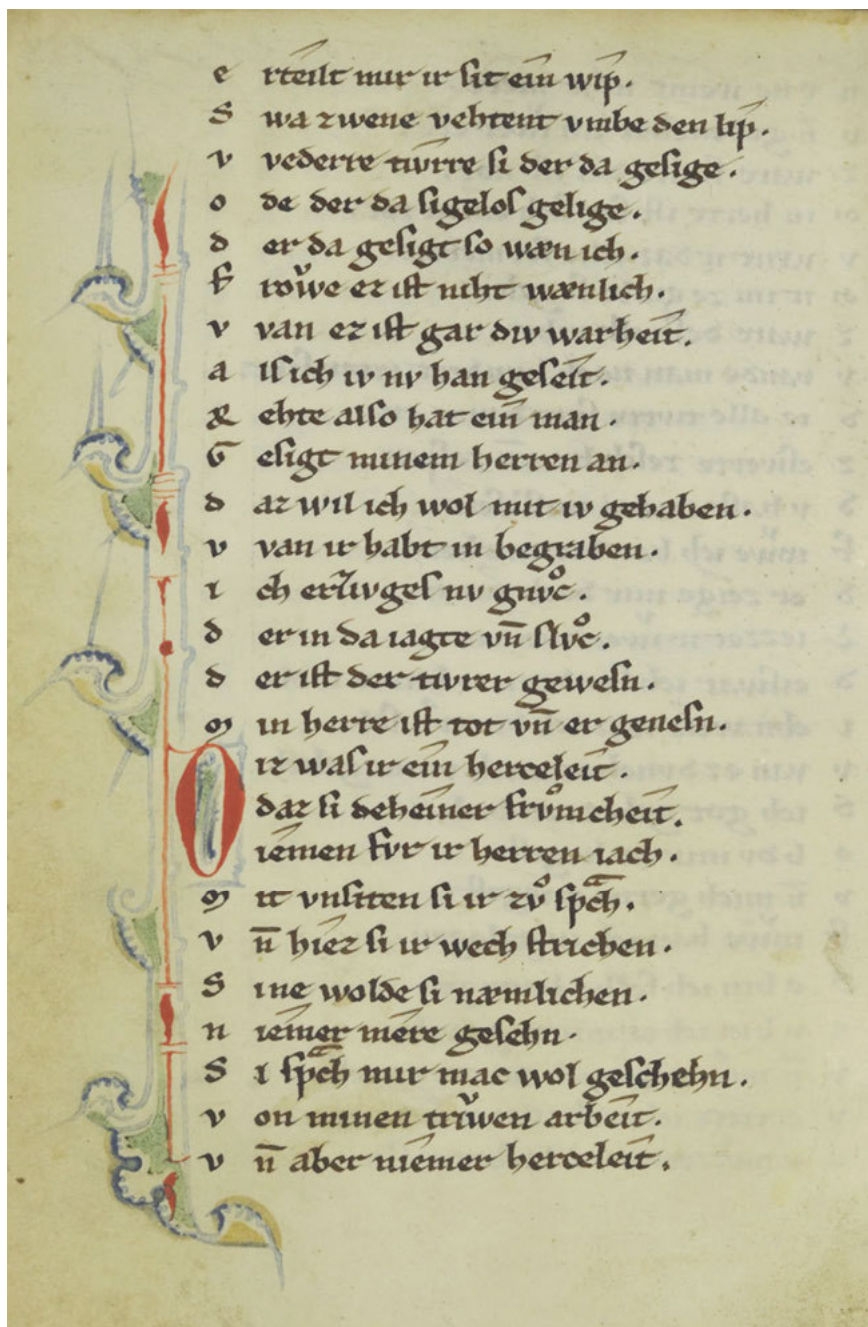 e rteilt mir ir sit ein wip.
S wa zwene vehtent vmbe den lip.
v vederre tiwrre si der da gesige.
o de der da sigelos gelige.
d er da gesigt so wæn ich.
f rowͮe ez ist niht wænlich.
v van ez ist gar diw warheit.
a ls ich iv nv han geseit.
R ehte also hat ein man.
G esigt minem herren an.
d az wil ich wol mit iv gehaben.
v van ir habt in begraben.
i ch erziwges nv gnvͦc.
d er in da iagte vn̄ slvͦc.
d er ist der tiwrer gewesn.
m in herre ist tot vn̄ er genesn.
D iz was ir ein herceleit.
daz si deheiner frvͦmcheit.
iemen fvr ir herren iach.
m it vnsiten si ir zvͦ spͣch.
v n̄ hiez si ir wech strichen.
S ine wolde si næmlichen.
n iemer mere gesehn.
S i spͣch mir mac wol geschehn.
v on minen triwen arbeit.
v n̄ aber niemer herceleit.